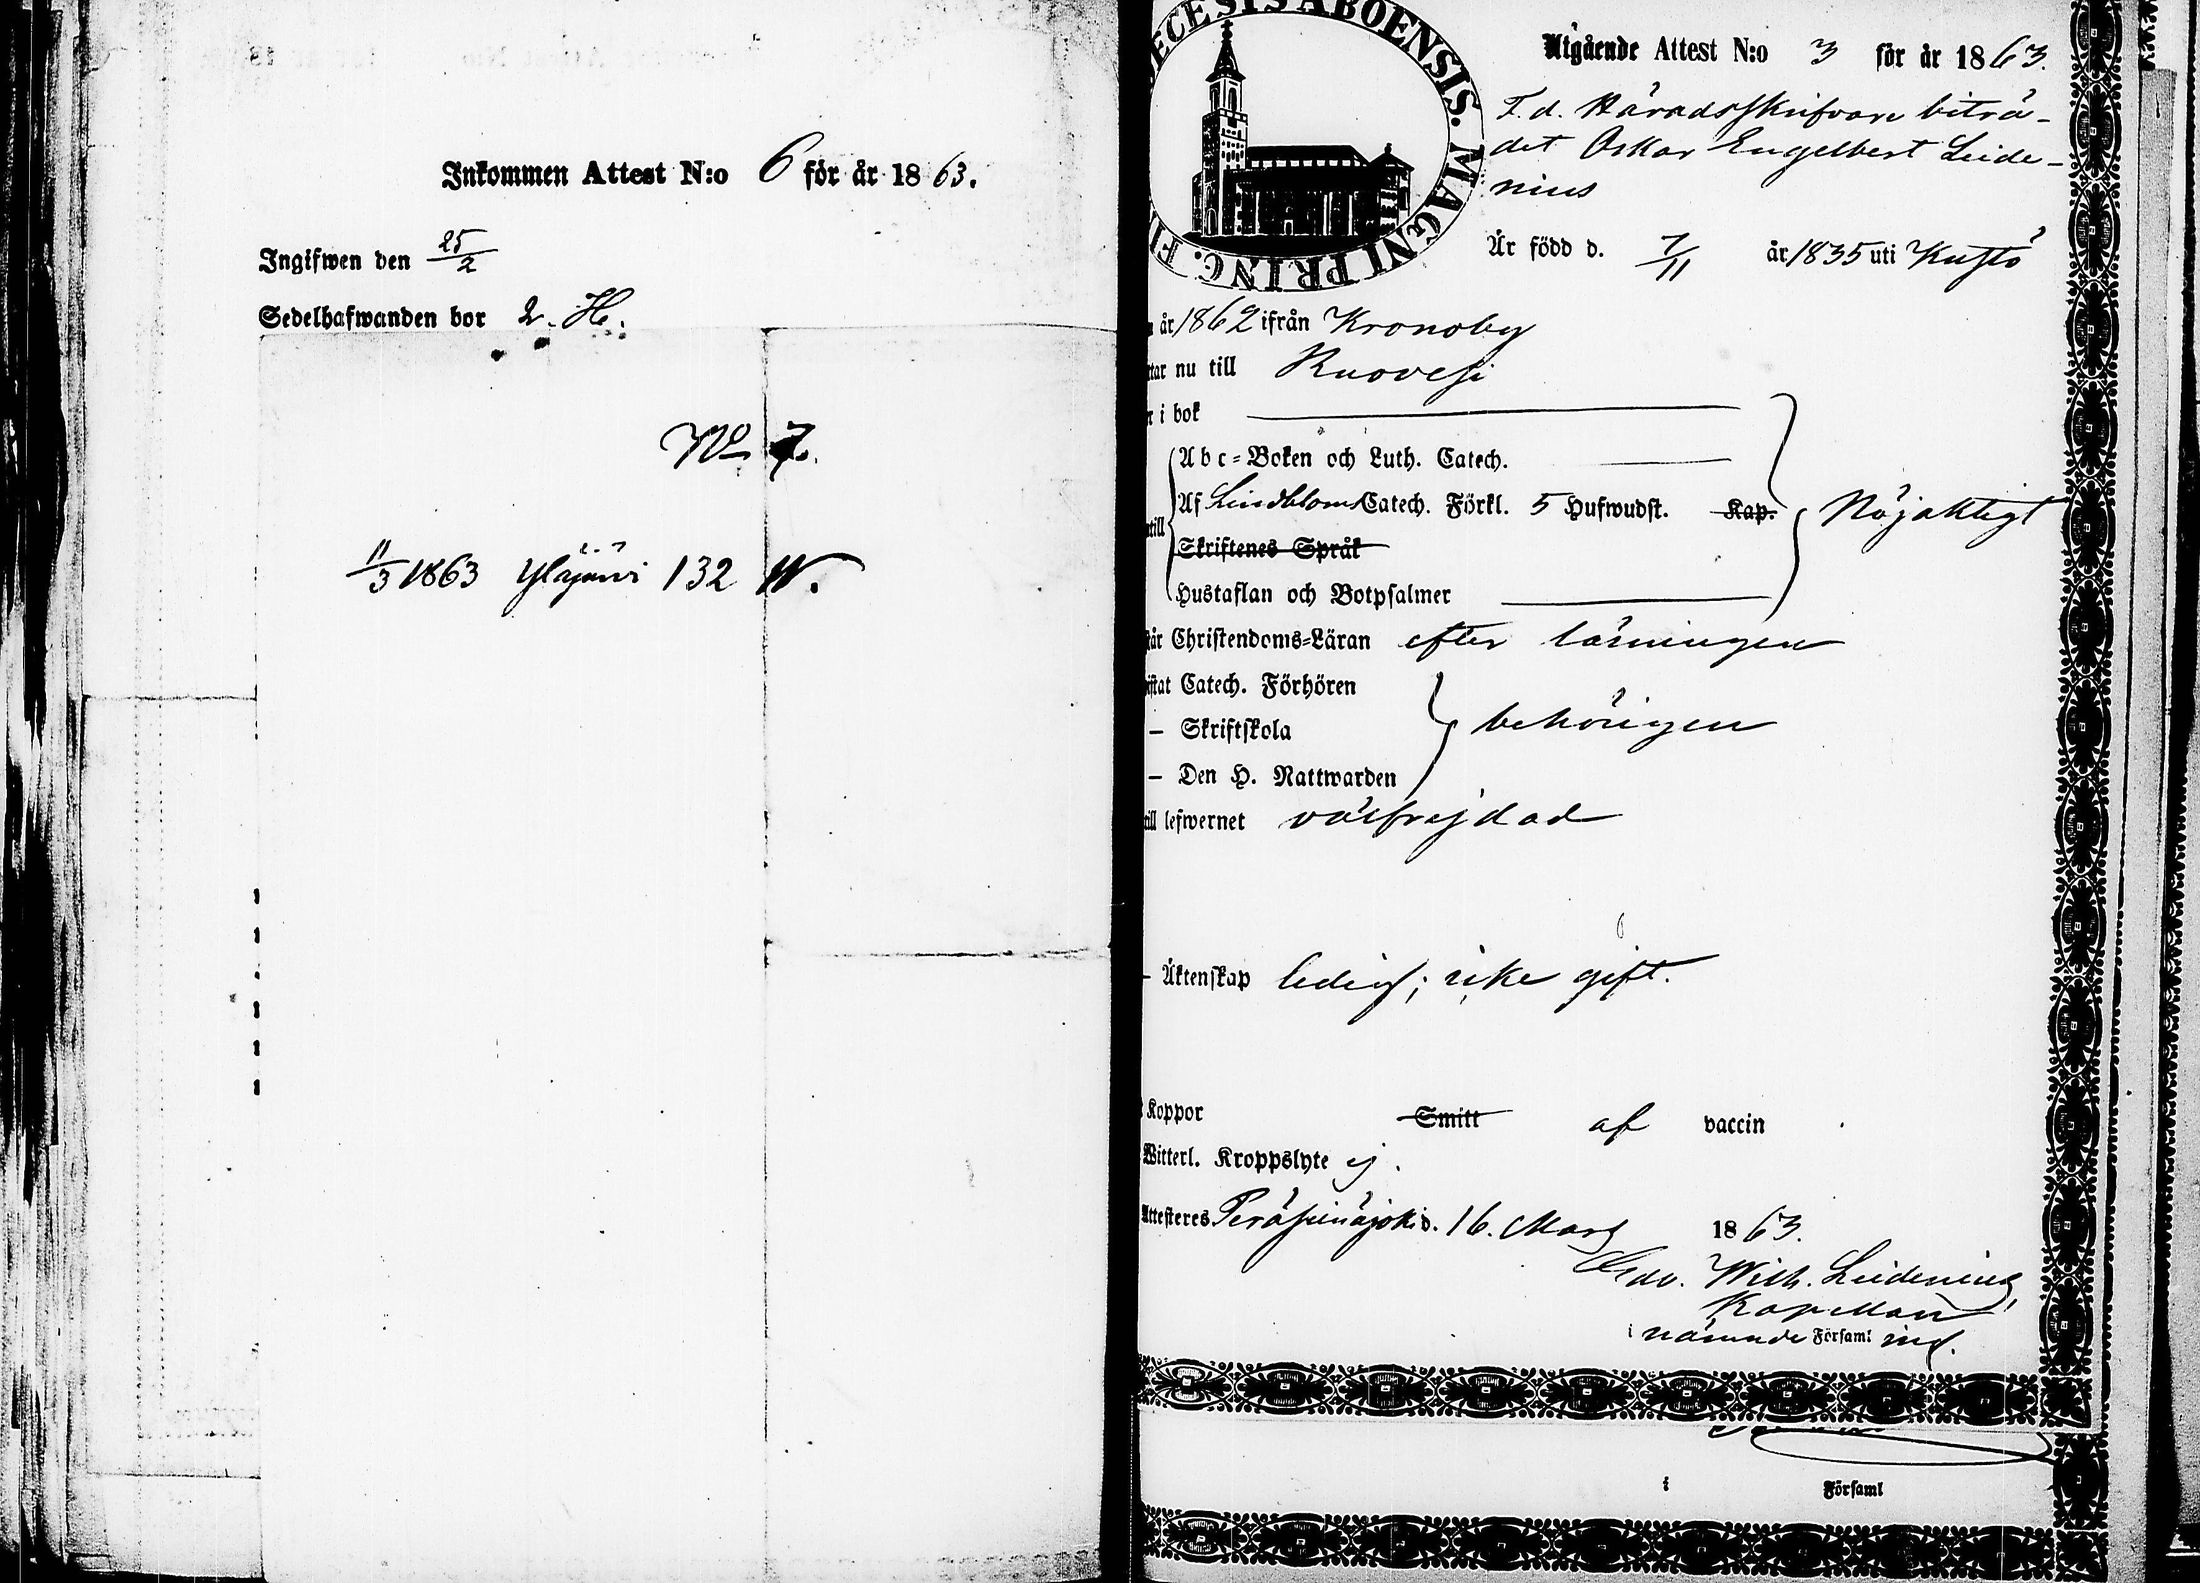 Inkommen Attest N:o 6 för år 1863.
Ingifwen den 25/2
Sedelhafwanden bor 2. H.
No 7.
11/3 1863 Ylöjärvi 132 W.
ECESIS ABOENSIS. MAGNI PRINC. FI
Utgående Attest N:o 3 för år 1863.
F. d. Häradsskrifvare biträ-
det Oskar Engelbert Leide-
nius
Är född d. 7/11 år 1835 uti Kustö
år 1862 ifrån Kronoby
tar nu till Ruovesi
r i bok
Abc-Boken och Luth. Catech.
Af Lindbloms Catech. Förkl. 5 Hufwudst. Kap. Nöjaktigt
till
Skriftenes Språk
Hustaflan och Botpsalmer
står Christendoms-Läran efter läsningen
istat Catech. Förhören
– Skriftskola behörigen
– Den H. Nattwarden
till lefwernet välfrejdad
– Äktenskap ledig; icke gift.
Koppor Smitt af vaccin
Witterl. Kroppslyte ej.
Attesteres Peräseinäjoki d. 16. Mars 1863.
Gdv. Wilh. Leidenius,
Kapellan
i nämnde Församl ing.
i Församl